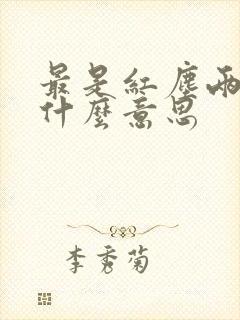 最是紅塵兩
什麼意思
李秀菊